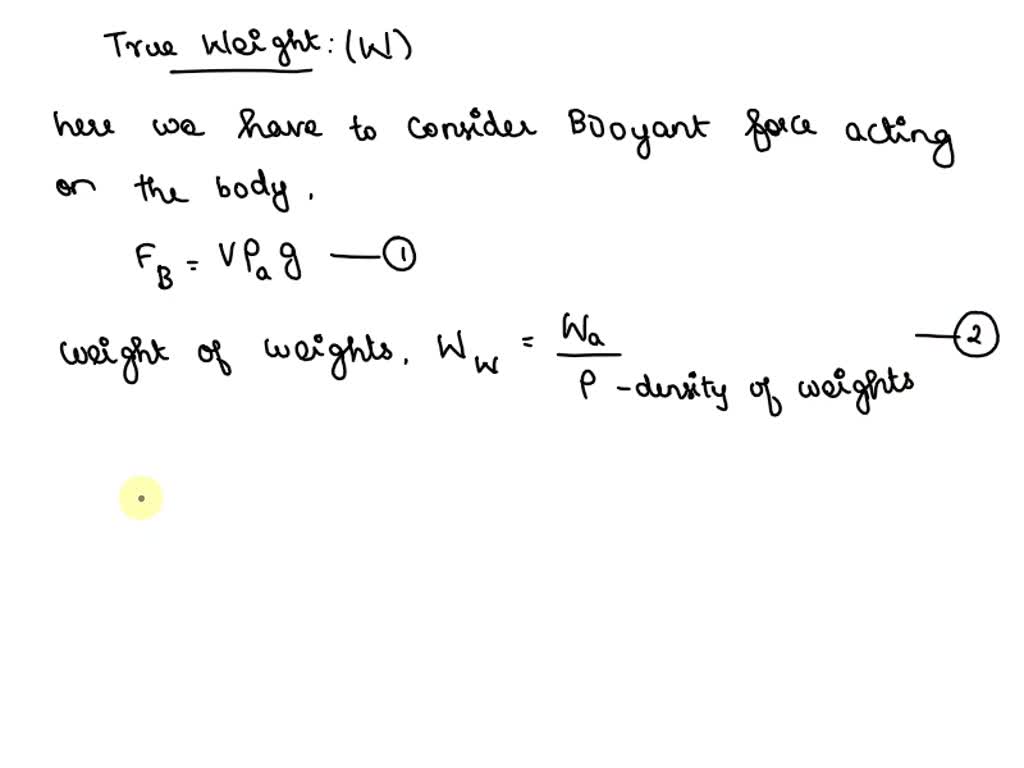 True Weight: (W)
here we have to consider Booyant force acting
on the body.
F_B = Vρ_a g —①
weight of weights, W_W = W_a / ρ - density of weights —②